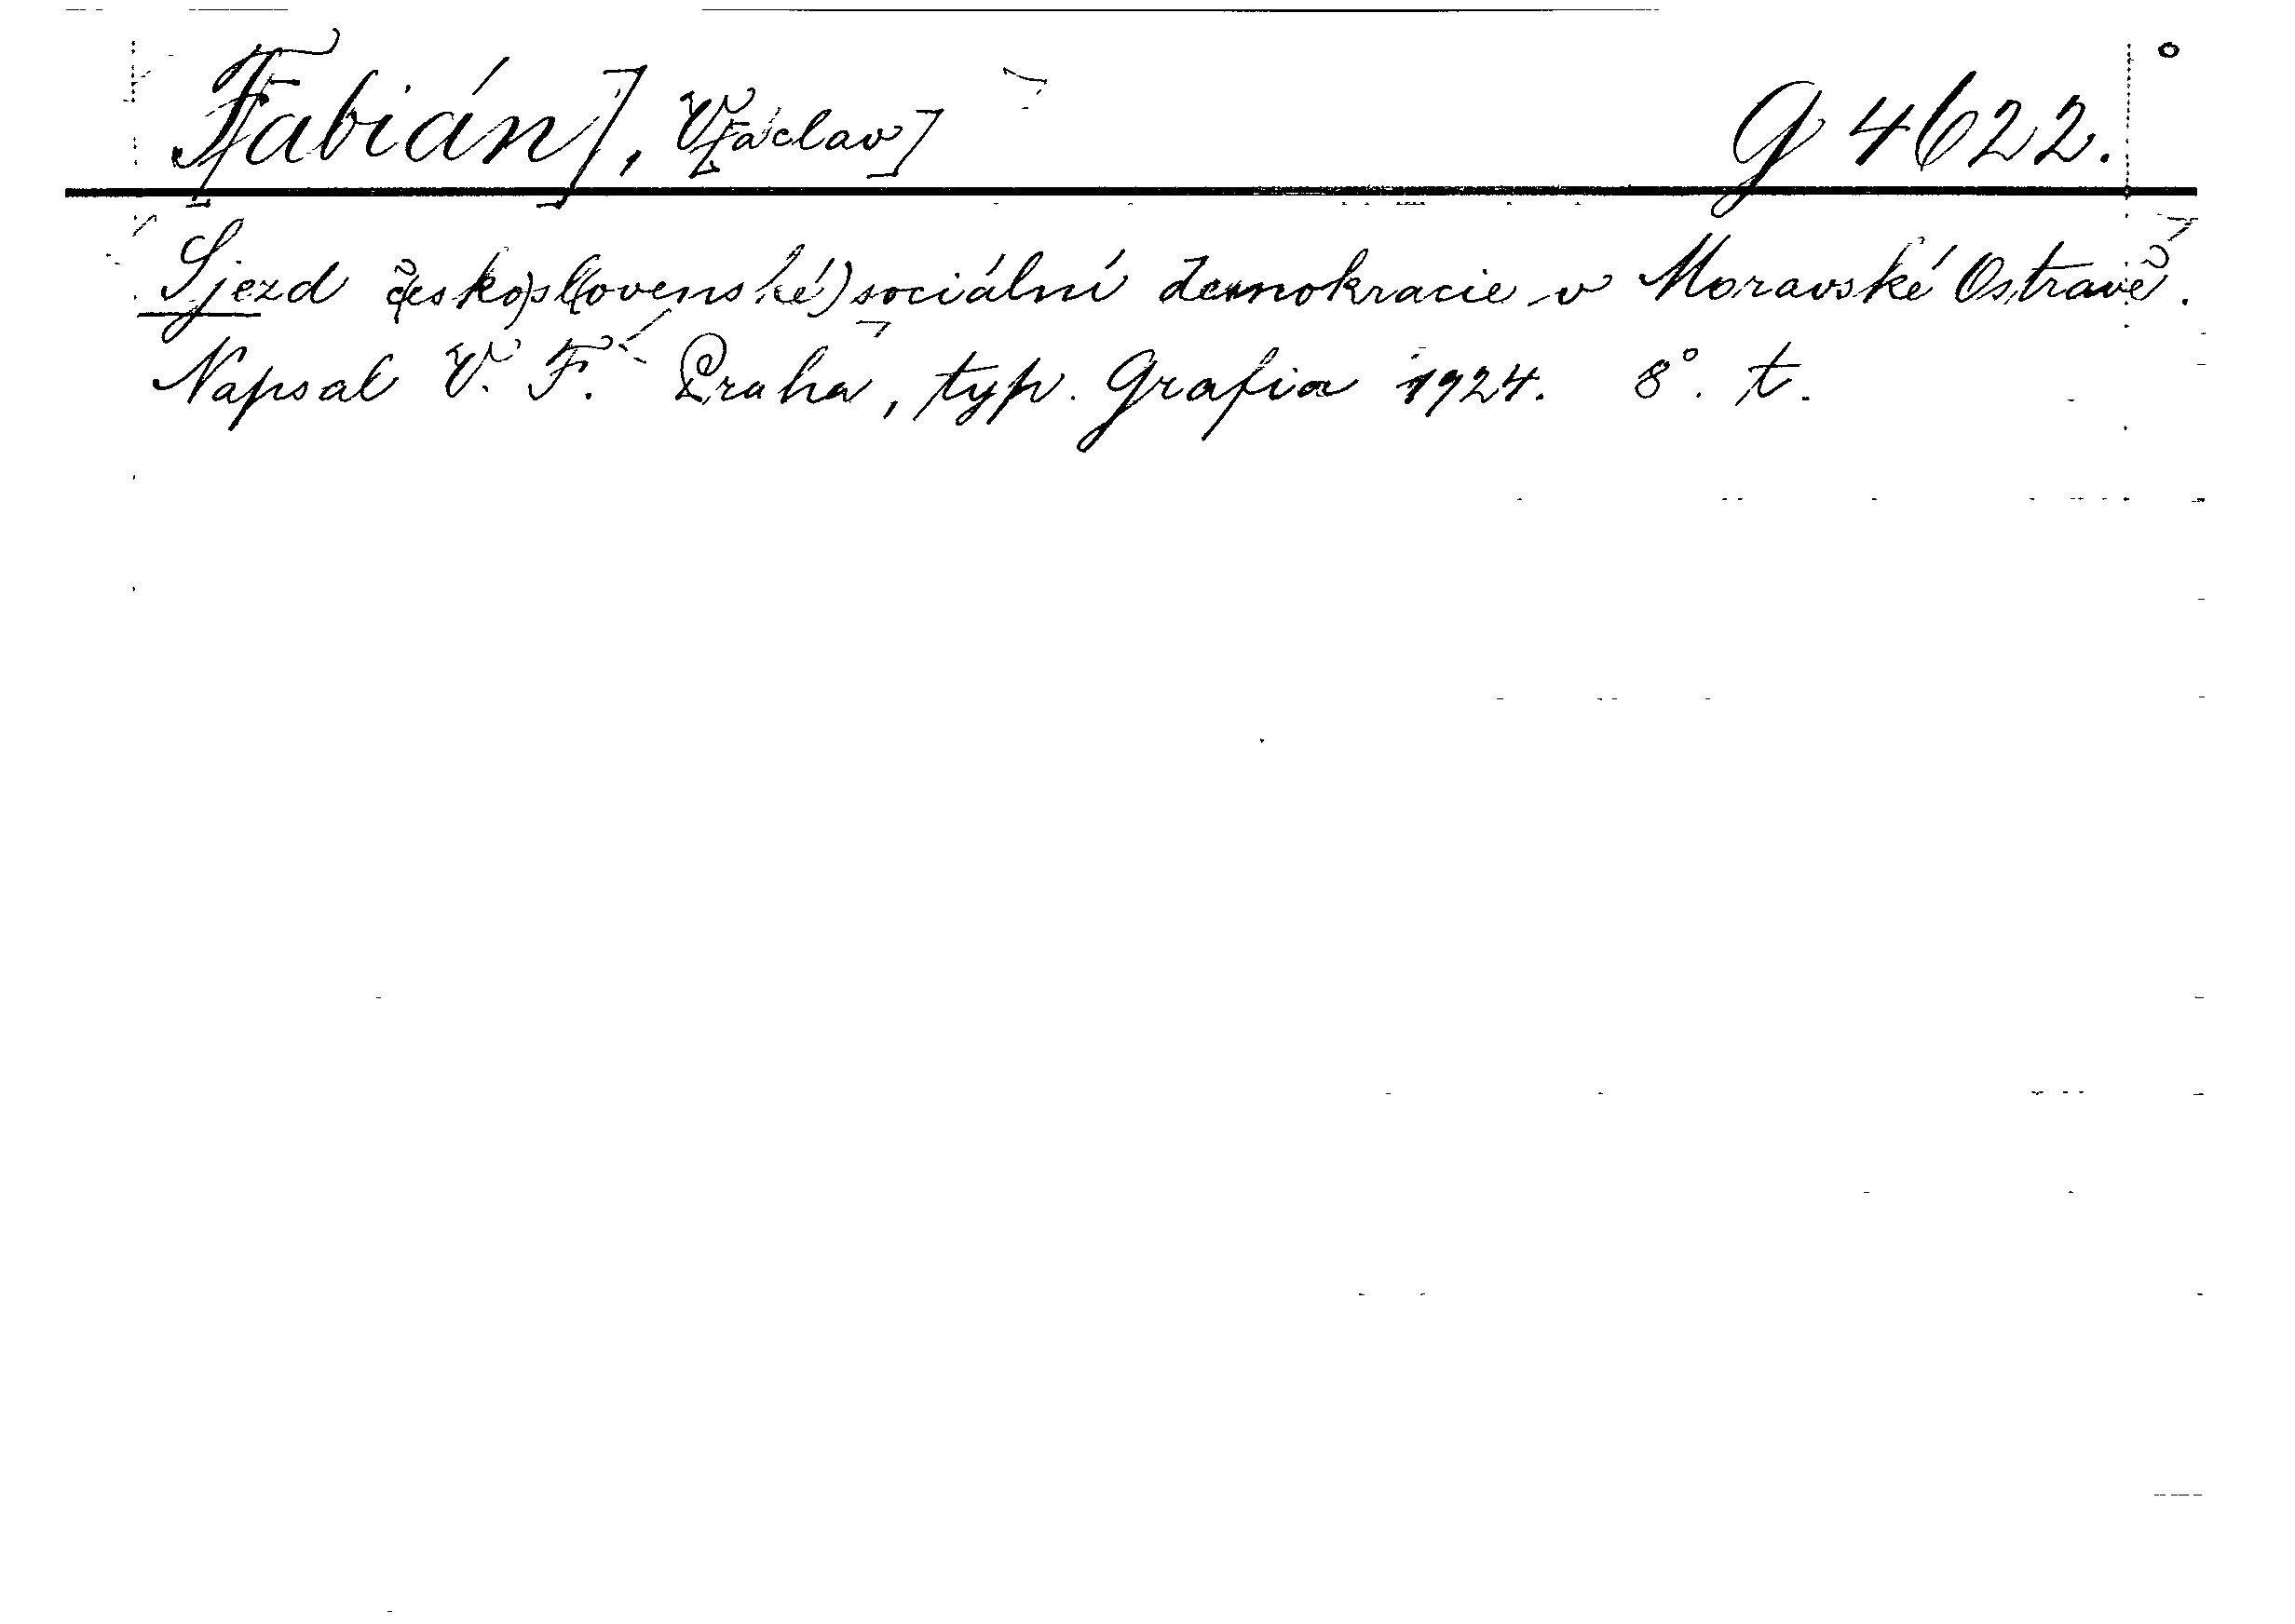 F[abián], V[áclav] G 4622.
Sjezd česko)sl(ovenské) sociální demokracie v Moravské Ostravě.
Napsal V. F. Praha, typ. Grafia 1924. 8°. t.